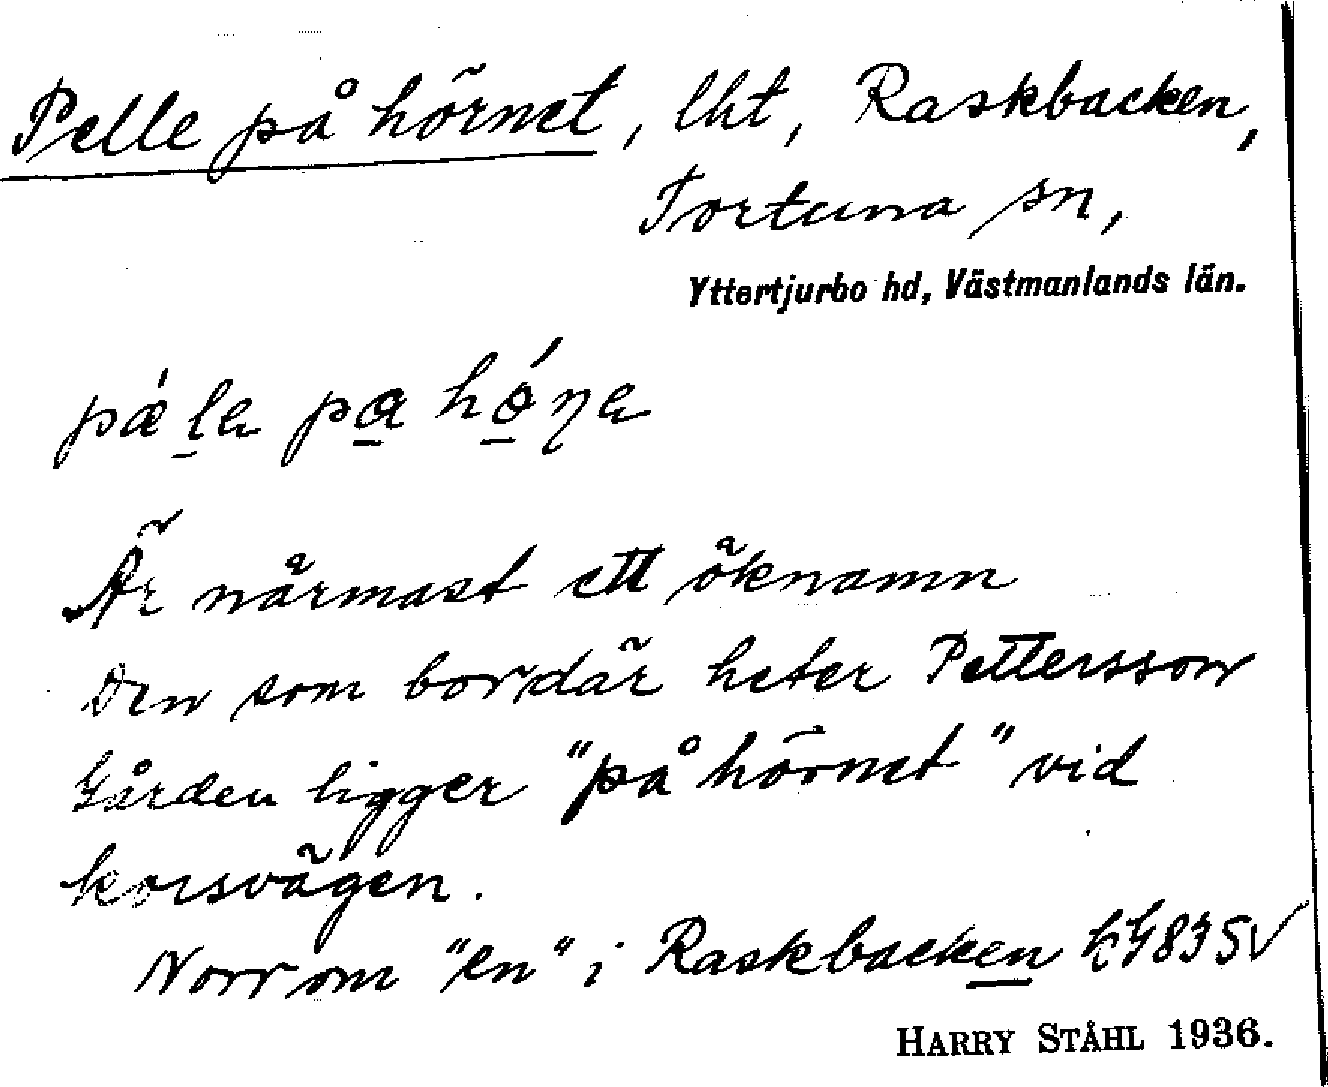 Pelle på hörnet, lht, Raskbacken,
Tortuna sn,
Yttertjurbo hd, Västmanlands län.
Är närmast ett öknamn
Den som bor där heter Pettersson
Gården ligger "på hörnet" vid
korsvägen.
Norr om "en" i Raskbacken
HARRY STÅHL 1936.